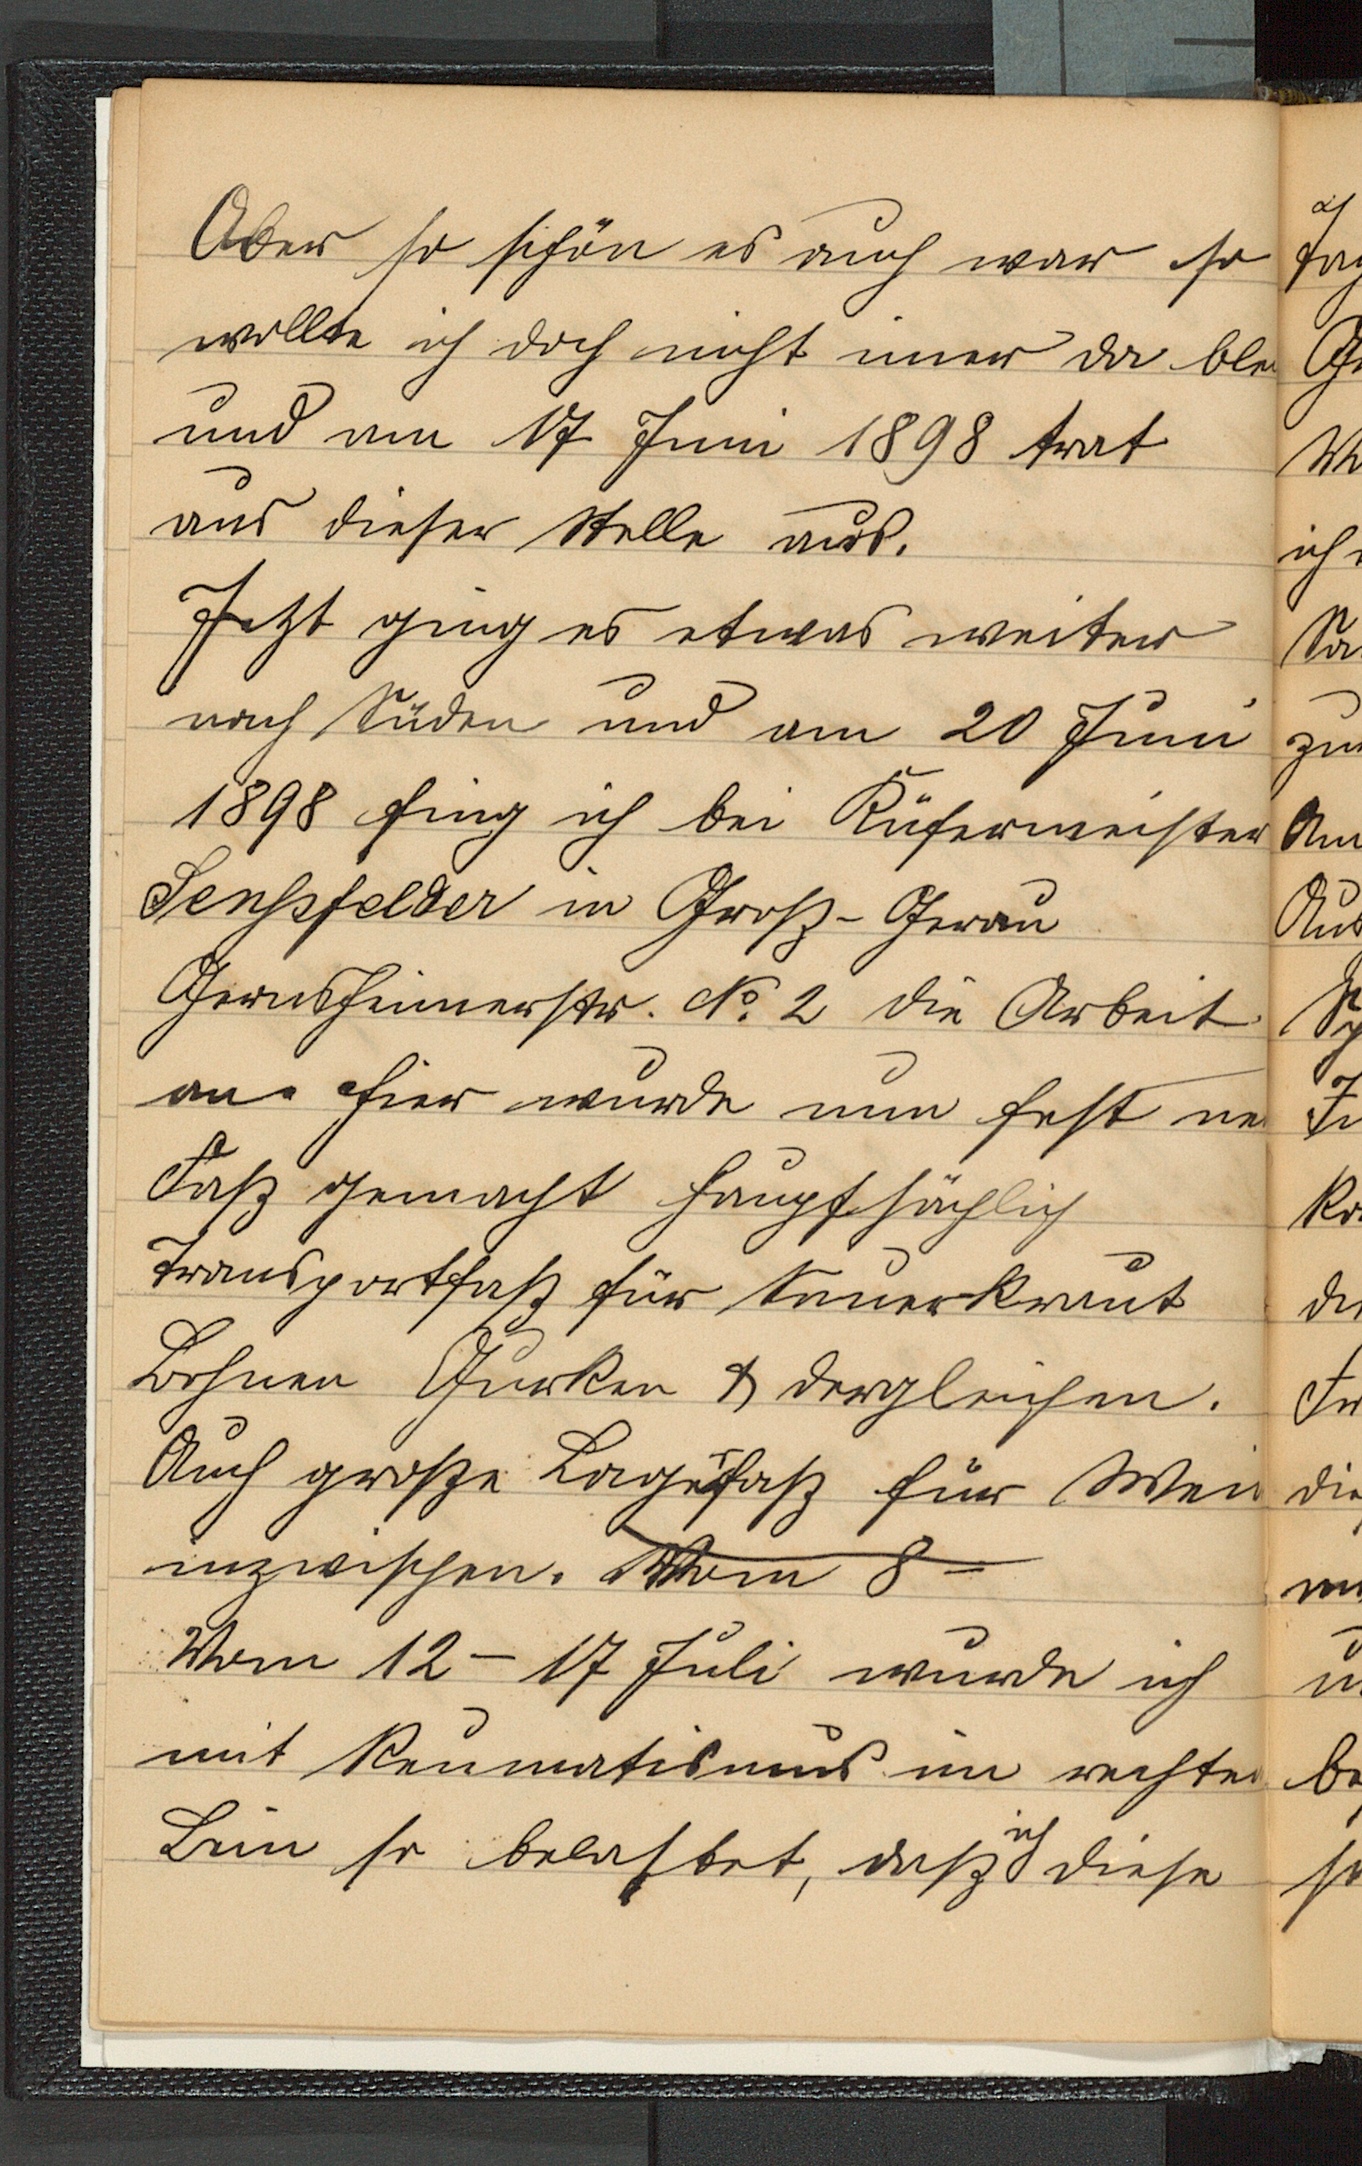 Aber so schön es auch war so
wollte ich doch nicht imer da blei
und am 17 Juni 1898 trat
aus dieser Stelle aus.
Jetzt ging es etwas weiter
nach Süden und am 20 Juni
1898 fing ich bei Küfermeister
Senßfelder in Groß-Gerau
Gernsheimerstr. No. 2 die Arbeit
an. Hier wurde nun fest ne
Faß gemacht haupfsächlich
Transportfaß für Sauerkraut
Bohnen Gurken & dergleichen.
Auch große Lagerfaß für Wein
inzwischen. Vom 8 –
Vom 12 – 17 Juli wurde ich
mit Reumatismus im rechten
Bein so belastet, daß ich diese